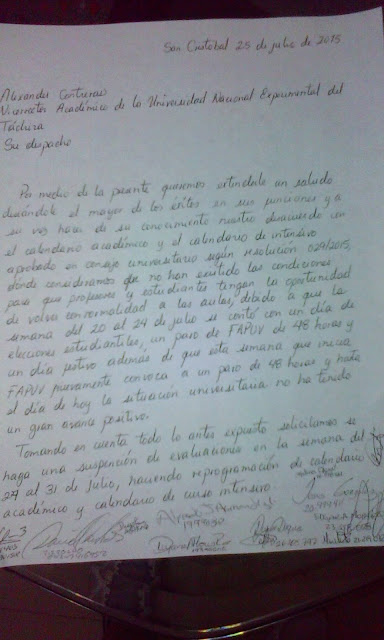 San Cristobal 25 de julio de 2015
Alexander Contreras
Vicerrector Académico de la Universidad Nacional Experimental del
Táchira
Su despacho
Por medio de la presente queremos extenderle un saludo
deseándole el mayor de los éxitos en sus funciones y a
su vez hacer de su conocimiento nuestro desacuerdo con
el calendario académico y el calendario de intensivo
aprobado en consejo universitario según resolución 029/2015,
dónde consideramos que no han existido las condiciones
para que profesores y estudiantes tengan la oportunidad
de volver con normalidad a las aulas, debido a que la
semana del 20 al 24 de julio se contó con un día de
elecciones estudiantiles, un paro de FAPUV de 48 horas y
un día festivo además de que esta semana que inicia
FAPUV nuevamente convoca a un paro de 48 horas y hasta
el día de hoy la situación universitaria no ha tenido
un gran avance positivo.
Tomando en cuenta todo lo antes expuesto solicitamos se
haga una suspención de evaluaciones en la semana del
27 al 31 de Julio, haciendo reprogramación de calendario
académico y calendario de curso intensivo.